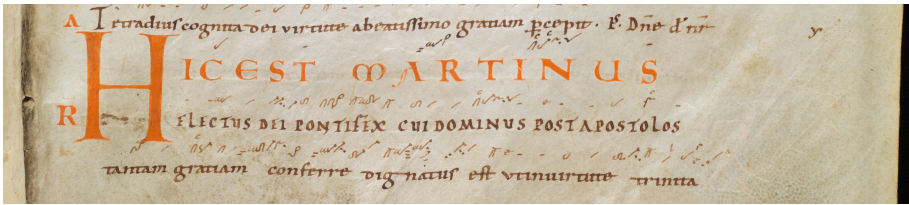 A Tetradius cognita dei uirtute abeatissimo gratiam pcepit. Ps. Dne ds nr
R HIC EST MARTINUS
ELECTUS DEI PONTIFEX CUI DOMINUS POST APOSTOLOS
tantam gratiam conferre dignatus est utinuirtute trinita